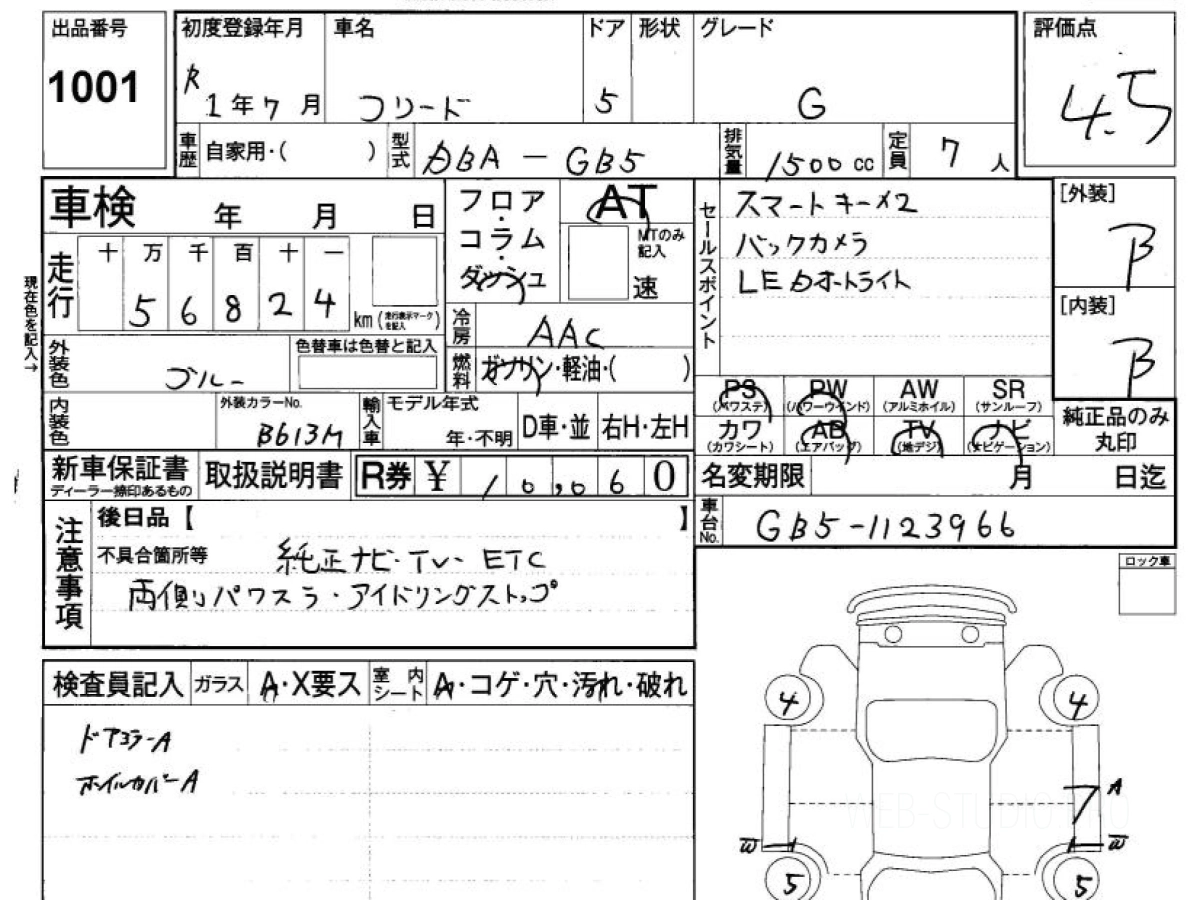 出品番号 初度登録年月 車名 ドア 形状 グレード 評価点
1001 R 1年7月 フリード 5 G 4.5
車歴 自家用・( ) 型式 DBA-GB5 排気量 1500cc 定員 7人
車検 年 月 日 フロア・コラム・ダッシュ AT セールスポイント スマートキー×2 [外装]
MTのみ記入 速 バックカメラ B
走行 十 万 千 百 十 一 LEDオートライト [内装]
5 6 8 2 4 km (走行表示マークを記入) B
現在色を記入→
冷房 AAC
外装色 ブルー 色替車は色替と記入 燃料 ガソリン・軽油・( )
PS (パワステ) PW (パワーウインド) AW (アルミホイル) SR (サンルーフ) 純正品のみ丸印
カワ (カワシート) AB (エアバッグ) TV (地デジ) ナビ (ナビゲーション)
内装色 外装カラーNo. B613M 輸入車 モデル年式 年・不明 D車・並 右H・左H
新車保証書 ディーラー捺印あるもの 取扱説明書 R券 ¥ 10,060 名変期限 月 日迄
注意事項 後日品【 】 車台No. GB5-1123966
不具合箇所等 純正ナビ・TV・ETC
両側パワスラ・アイドリングストップ
ロック車
検査員記入 ガラス A・X要ス 室内シート A・コゲ・穴・汚れ・破れ
4 4
ドアミラーA
ホイルカバーA
7 A
WEB-STUDIO.PRO
W W
5 5